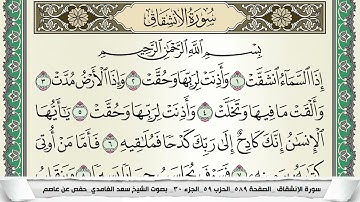 سُورَةُ الِانْشِقَاقِ
بِسْمِ اللَّهِ الرَّحْمَٰنِ الرَّحِيمِ
إِذَا السَّمَاءُ انْشَقَّتْ ١ وَأَذِنَتْ لِرَبِّهَا وَحُقَّتْ ٢ وَإِذَا الْأَرْضُ مُدَّتْ ٣
وَأَلْقَتْ مَا فِيهَا وَتَخَلَّتْ ٤ وَأَذِنَتْ لِرَبِّهَا وَحُقَّتْ ٥ يَا أَيُّهَا
الْإِنْسَانُ إِنَّكَ كَادِحٌ إِلَىٰ رَبِّكَ كَدْحًا فَمُلَاقِيهِ ٦ فَأَمَّا مَنْ أُوتِيَ
سورة الإنشقاق الصفحة ٥٨٩ الحزب ٥٩ الجزء ٣٠ بصوت الشيخ سعد الغامدي حفص عن عاصم